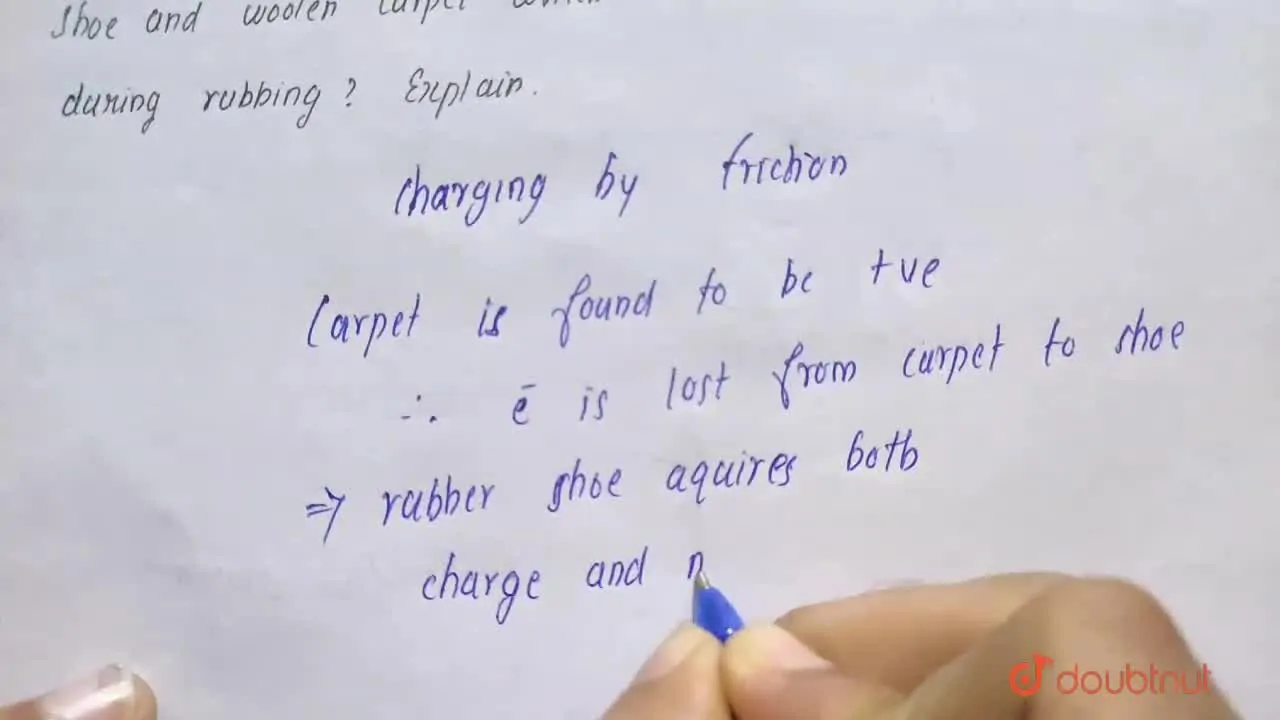 shoe and woolen carpet
during rubbing? Explain.
Charging by friction
Carpet is found to be +ve
∴ ē is lost from carpet to shoe
⇒ rubber shoe aquires both
charge and m
doubtnut